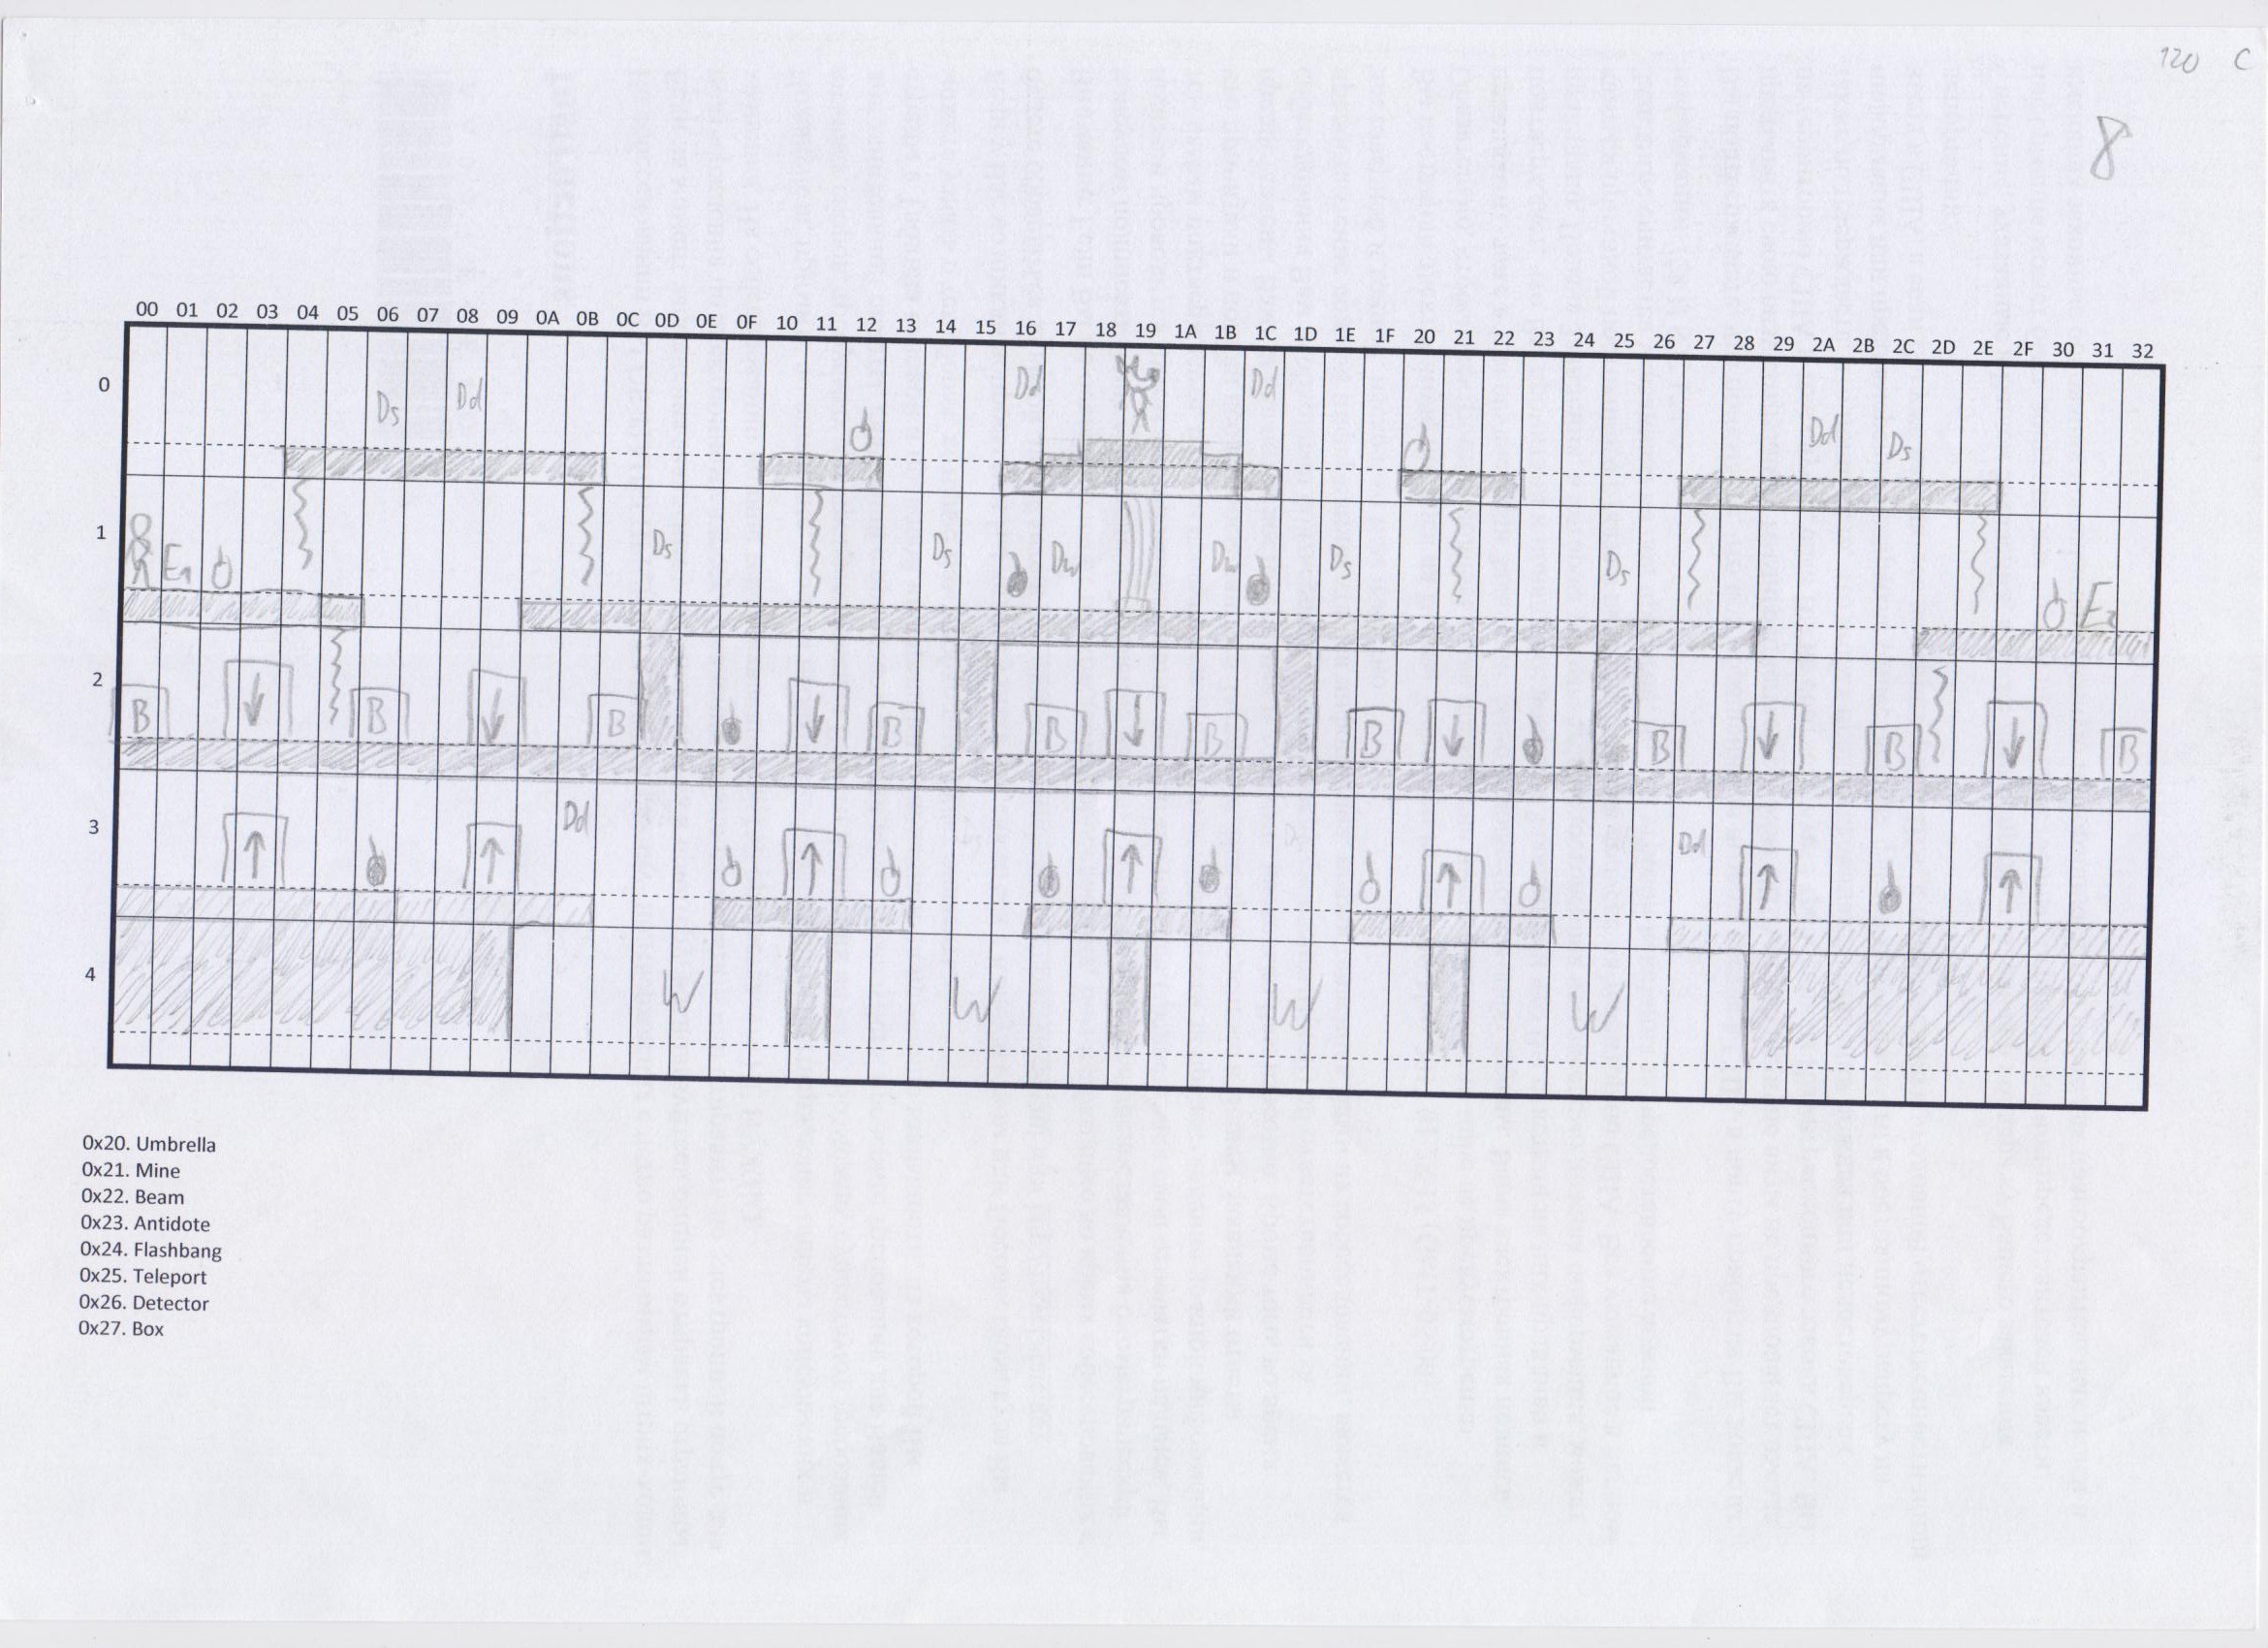 120 C
8
00 01 02 03 04 05 06 07 08 09 0A 0B 0C 0D 0E 0F 10 11 12 13 14 15 16 17 18 19 1A 1B 1C 1D 1E 1F 20 21 22 23 24 25 26 27 28 29 2A 2B 2C 2D 2E 2F 30 31 32
0
Ds Dd Dd Dd Dd Ds
1
E1 Ds Ds Dw Dw Ds Ds E2
2
B B B B B B B B B B
3
Dd Dd
4
W W W W
0x20. Umbrella
0x21. Mine
0x22. Beam
0x23. Antidote
0x24. Flashbang
0x25. Teleport
0x26. Detector
0x27. Box